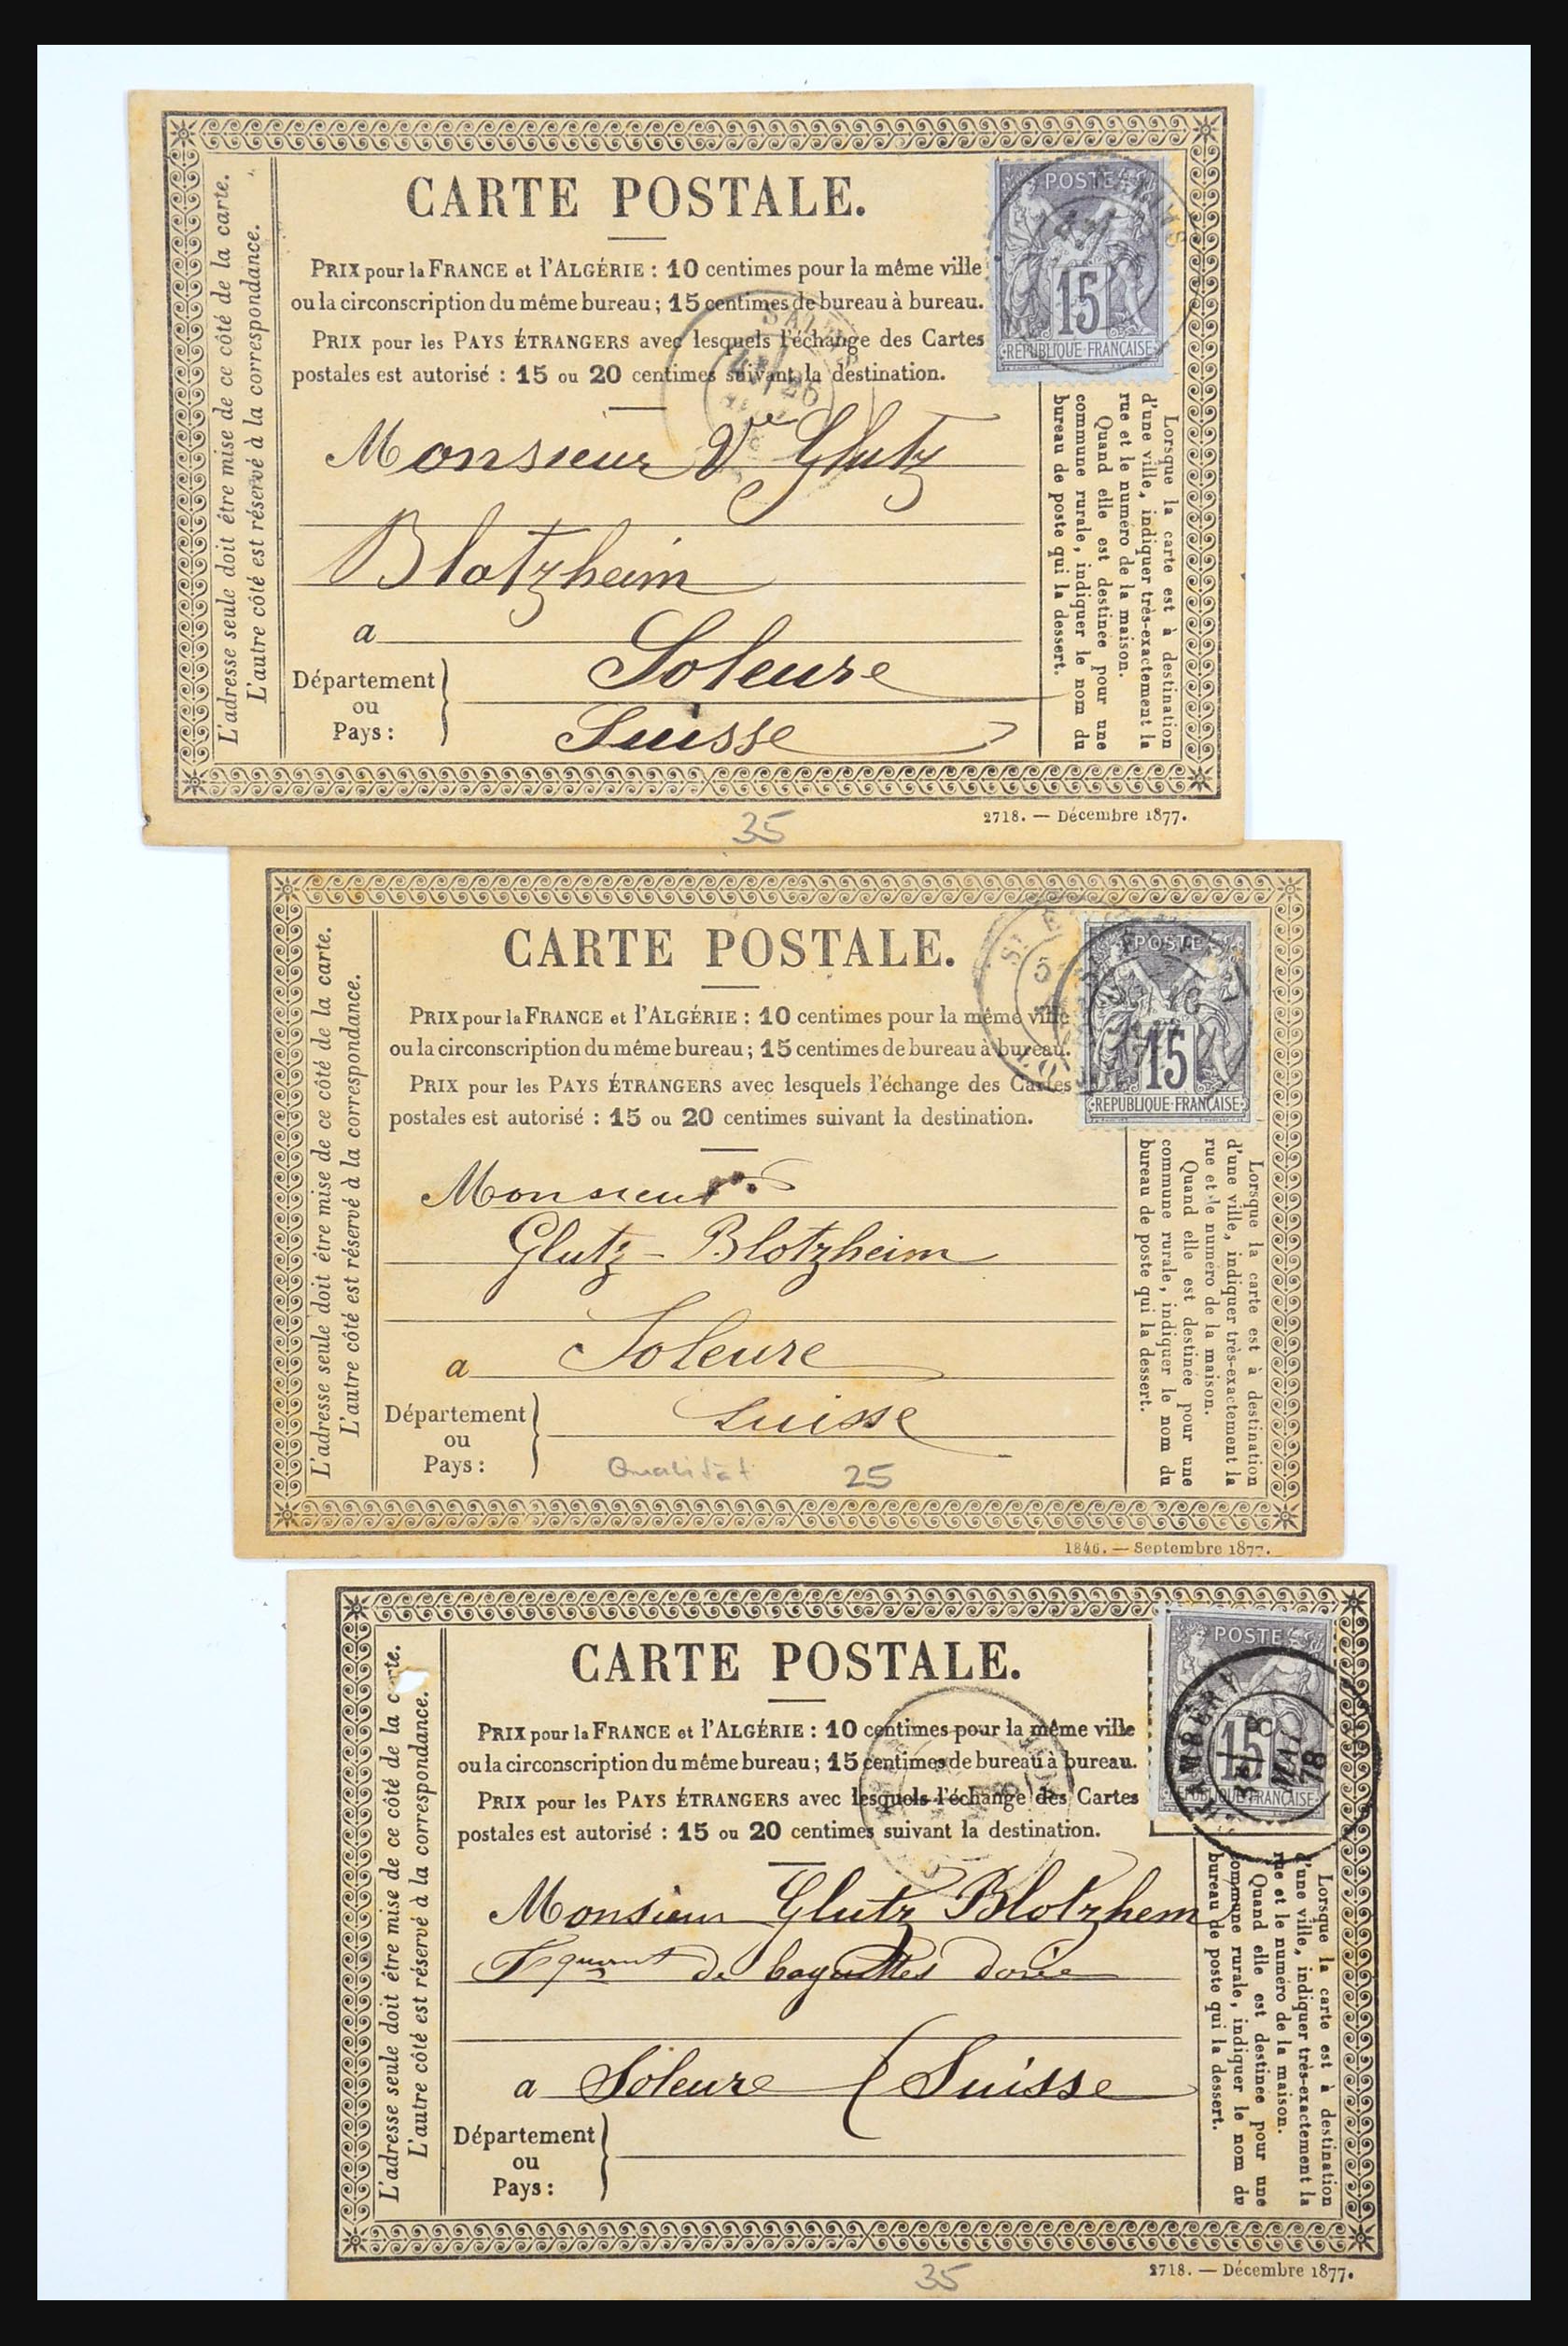 CARTE POSTALE.
PRIX pour la FRANCE et l'ALGÉRIE : 10 centimes pour la même ville
ou la circonscription du même bureau ; 15 centimes de bureau à bureau.
PRIX pour les PAYS ÉTRANGERS avec lesquels l'échange des Cartes
postales est autorisé : 15 ou 20 centimes suivant la destination.
L'adresse seule doit être mise de ce côté de la carte.
L'autre côté est réservé à la correspondance.
POSTE
15
REPUBLIQUE FRANÇAISE
Monsieur Ve Glutz
Blotzheim
a Soleure
Département
ou
Pays :
Suisse
Lorsque la carte est à destination
d'une ville, indiquer très-exactement la
rue et le numéro de la maison.
Quand elle est destinée pour une
commune rurale, indiquer le nom du
bureau de poste qui la dessert.
2718. — Décembre 1877.
35
CARTE POSTALE.
PRIX pour la FRANCE et l'ALGÉRIE : 10 centimes pour la même ville
ou la circonscription du même bureau ; 15 centimes de bureau à bureau.
PRIX pour les PAYS ÉTRANGERS avec lesquels l'échange des Cartes
postales est autorisé : 15 ou 20 centimes suivant la destination.
L'adresse seule doit être mise de ce côté de la carte.
L'autre côté est réservé à la correspondance.
POSTE
15
REPUBLIQUE FRANÇAISE
Monsieur
Glutz - Blotzheim
a Soleure
Département
ou
Pays :
Suisse
Qualität 25
Lorsque la carte est à destination
d'une ville, indiquer très-exactement la
rue et le numéro de la maison.
Quand elle est destinée pour une
commune rurale, indiquer le nom du
bureau de poste qui la dessert.
1846. — Septembre 1877.
CARTE POSTALE.
PRIX pour la FRANCE et l'ALGÉRIE : 10 centimes pour la même ville
ou la circonscription du même bureau ; 15 centimes de bureau à bureau.
PRIX pour les PAYS ÉTRANGERS avec lesquels l'échange des Cartes
postales est autorisé : 15 ou 20 centimes suivant la destination.
L'adresse seule doit être mise de ce côté de la carte.
L'autre côté est réservé à la correspondance.
POSTE
15
REPUBLIQUE FRANÇAISE
MAI
78
Monsieur Glutz Blotzhem
de baguettes dorée
a Soleure (Suisse
Département
ou
Pays :
Lorsque la carte est à destination
d'une ville, indiquer très-exactement la
rue et le numéro de la maison.
Quand elle est destinée pour une
commune rurale, indiquer le nom du
bureau de poste qui la dessert.
2718. — Décembre 1877.
35